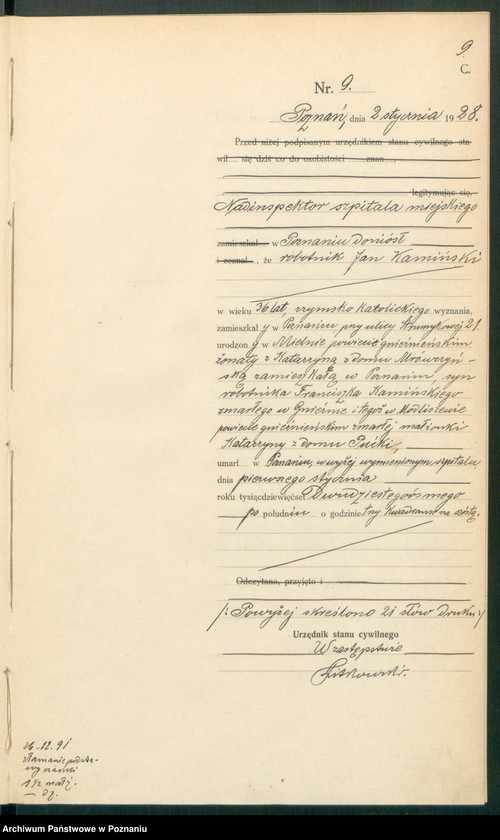 9.
C.
Nr. 9.
Poznań, dnia 2 stycznia 1928.
Przed niżej podpisanym urzędnikiem stanu cywilnego sta-
wił się dziś co do osobistości znan,
legitymując się,
Nadinspektor szpitala miejskiego
zamieszkał w Poznaniu doniósł
i zeznał, że robotnik Jan Kamiński
w wieku 36 lat, rzymsko katolickiego wyznania,
zamieszkały w Poznaniu, przy ulicy Strumykowej 21.
urodzony w Mielnie powiecie gnieźnieńskim
żonaty z Katarzyną z domu Mrówczyń-
ską zamieszkałą w Poznaniu, syn
robotnika Franciszka Kamińskiego
zmarłego w Gnieźnie i tegoż w Modliszewie
powiecie gnieźnieńskim zmarłej małżonki
Katarzyny z domu
umarł w Poznaniu, w wyżej wymienionym szpitalu
dnia pierwszego stycznia
roku tysiącdziewięćset Dwudziestegoósmego
po południu o godzinie trzy kwadranse na szóstą.
Odczytano, przyjęto i
/: Powyżej skreślono 21 słów druku :/
Urzędnik stanu cywilnego
W zastępstwie
Witkowski.
16.12.91
142 małż.
Archiwum Państwowe w Poznaniu